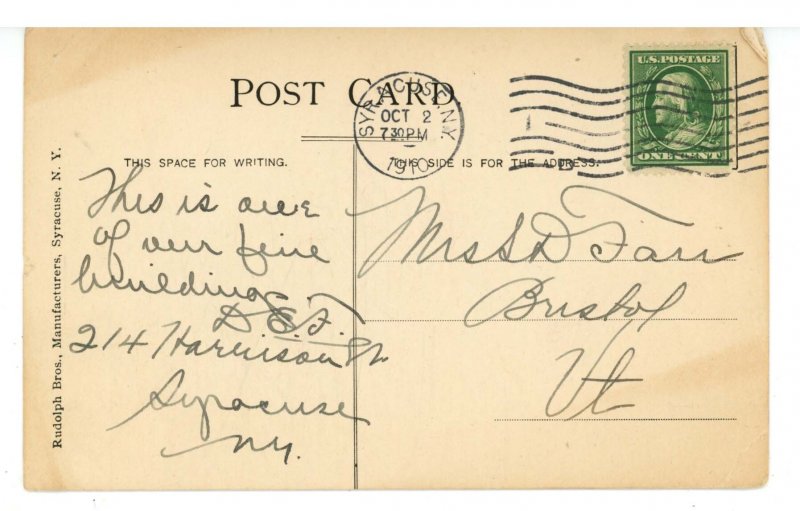 POST CARD
SYRACUSE, N.Y.
OCT 2
7 30 PM
1910
U.S. POSTAGE
ONE CENT
THIS SPACE FOR WRITING.
THIS SIDE IS FOR THE ADDRESS.
This is one
of our fine
buildings.
D E. F.
214 Harrison St.
Syracuse
N.Y.
Mrs S D Farr
Bristol
Vt
Rudolph Bros., Manufacturers, Syracuse, N. Y.